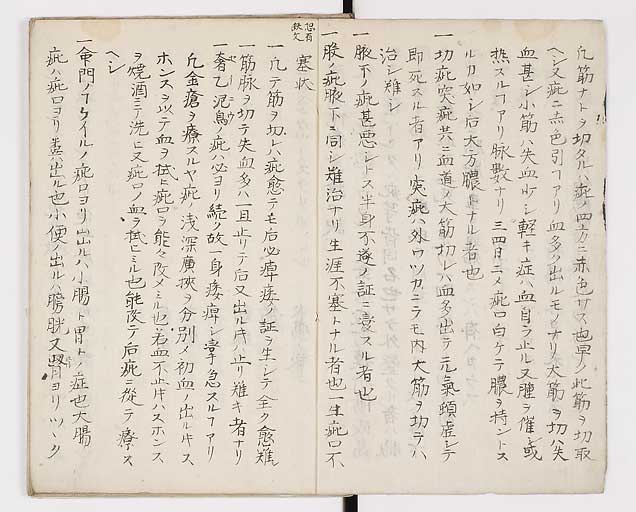 凢筋ナトヲ切タルハ疵ノ四方ニ赤色サス也早ク此筋ヲ切取
ヘシ又疵ニ赤色引フアリ血多ク出ルモノナリ大筋ヲ切ハ失
血甚シ小筋ハ失血少シ軽キ症ハ血自ラ止ル又腫ヲ催シ或
熱スルフアリ脉數ナリ三四日ニメ疵口白ケテ膿ヲ持ントス
ルカ如シ后大方膿トナル者也
一切疵突疵共ニ血道ノ大筋切レハ血多出テ元氣頓虚シテ
即死スル者アリ突疵ハ外ウツカニラモ内大筋ヲ切テハ
治シ難シ
一腋下ノ疵甚悪シトス半身不遂ノ証ニ変スル者也
一股ノ疵腋下ニ同シ難治ナリ生涯不塞トナル者也一生疵口不
塞状
一凢テ筋ヲ切レハ疵愈テモ后必痺痿ノ証ヲ生シテ全ク愈難
一筋脉ヲ切テ失血多ハ一旦止リテ后又出ル片ハ止リ難キ者ナリ
一奢乙泥鳥ノ疵ハ必ヨリ続ノ故一身痿痺シ攣急スルフアリ
凢金瘡ヲ療スルヤ疵ノ浅深廣挾ヲ分別メ初血ノ出ル片ハス
ホンスヲ以テ血ヲ拭ヒ疵口ヲ能々改メミル也若血不止片ハスホンス
ヲ焼酒ニテ洗ヒ又疵口ノ血ヲ拭ヒミル也能改テ后疵ニ從テ療ス
ヘシ
一命門ノ疵口ヨリ出ルハ小腸ト胃トノ症也大腸
疵ハ疵口ヨリ糞ハ出ル也小便ノ出ルハ膀胱又腎ヨリツヽク